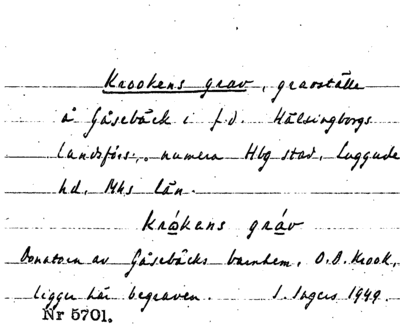 Krookens grav, gravställe
å Gåsebäck i f.d. Hälsingborgs
landsförs., numera Hbg stad, Luggude
hd, Mhs län.
Krókans gráv
Donatorn av Gåsebäcks barnhem, O.D. Krook,
ligger här begraven. I. Ingers 1949.
Nr 5701.